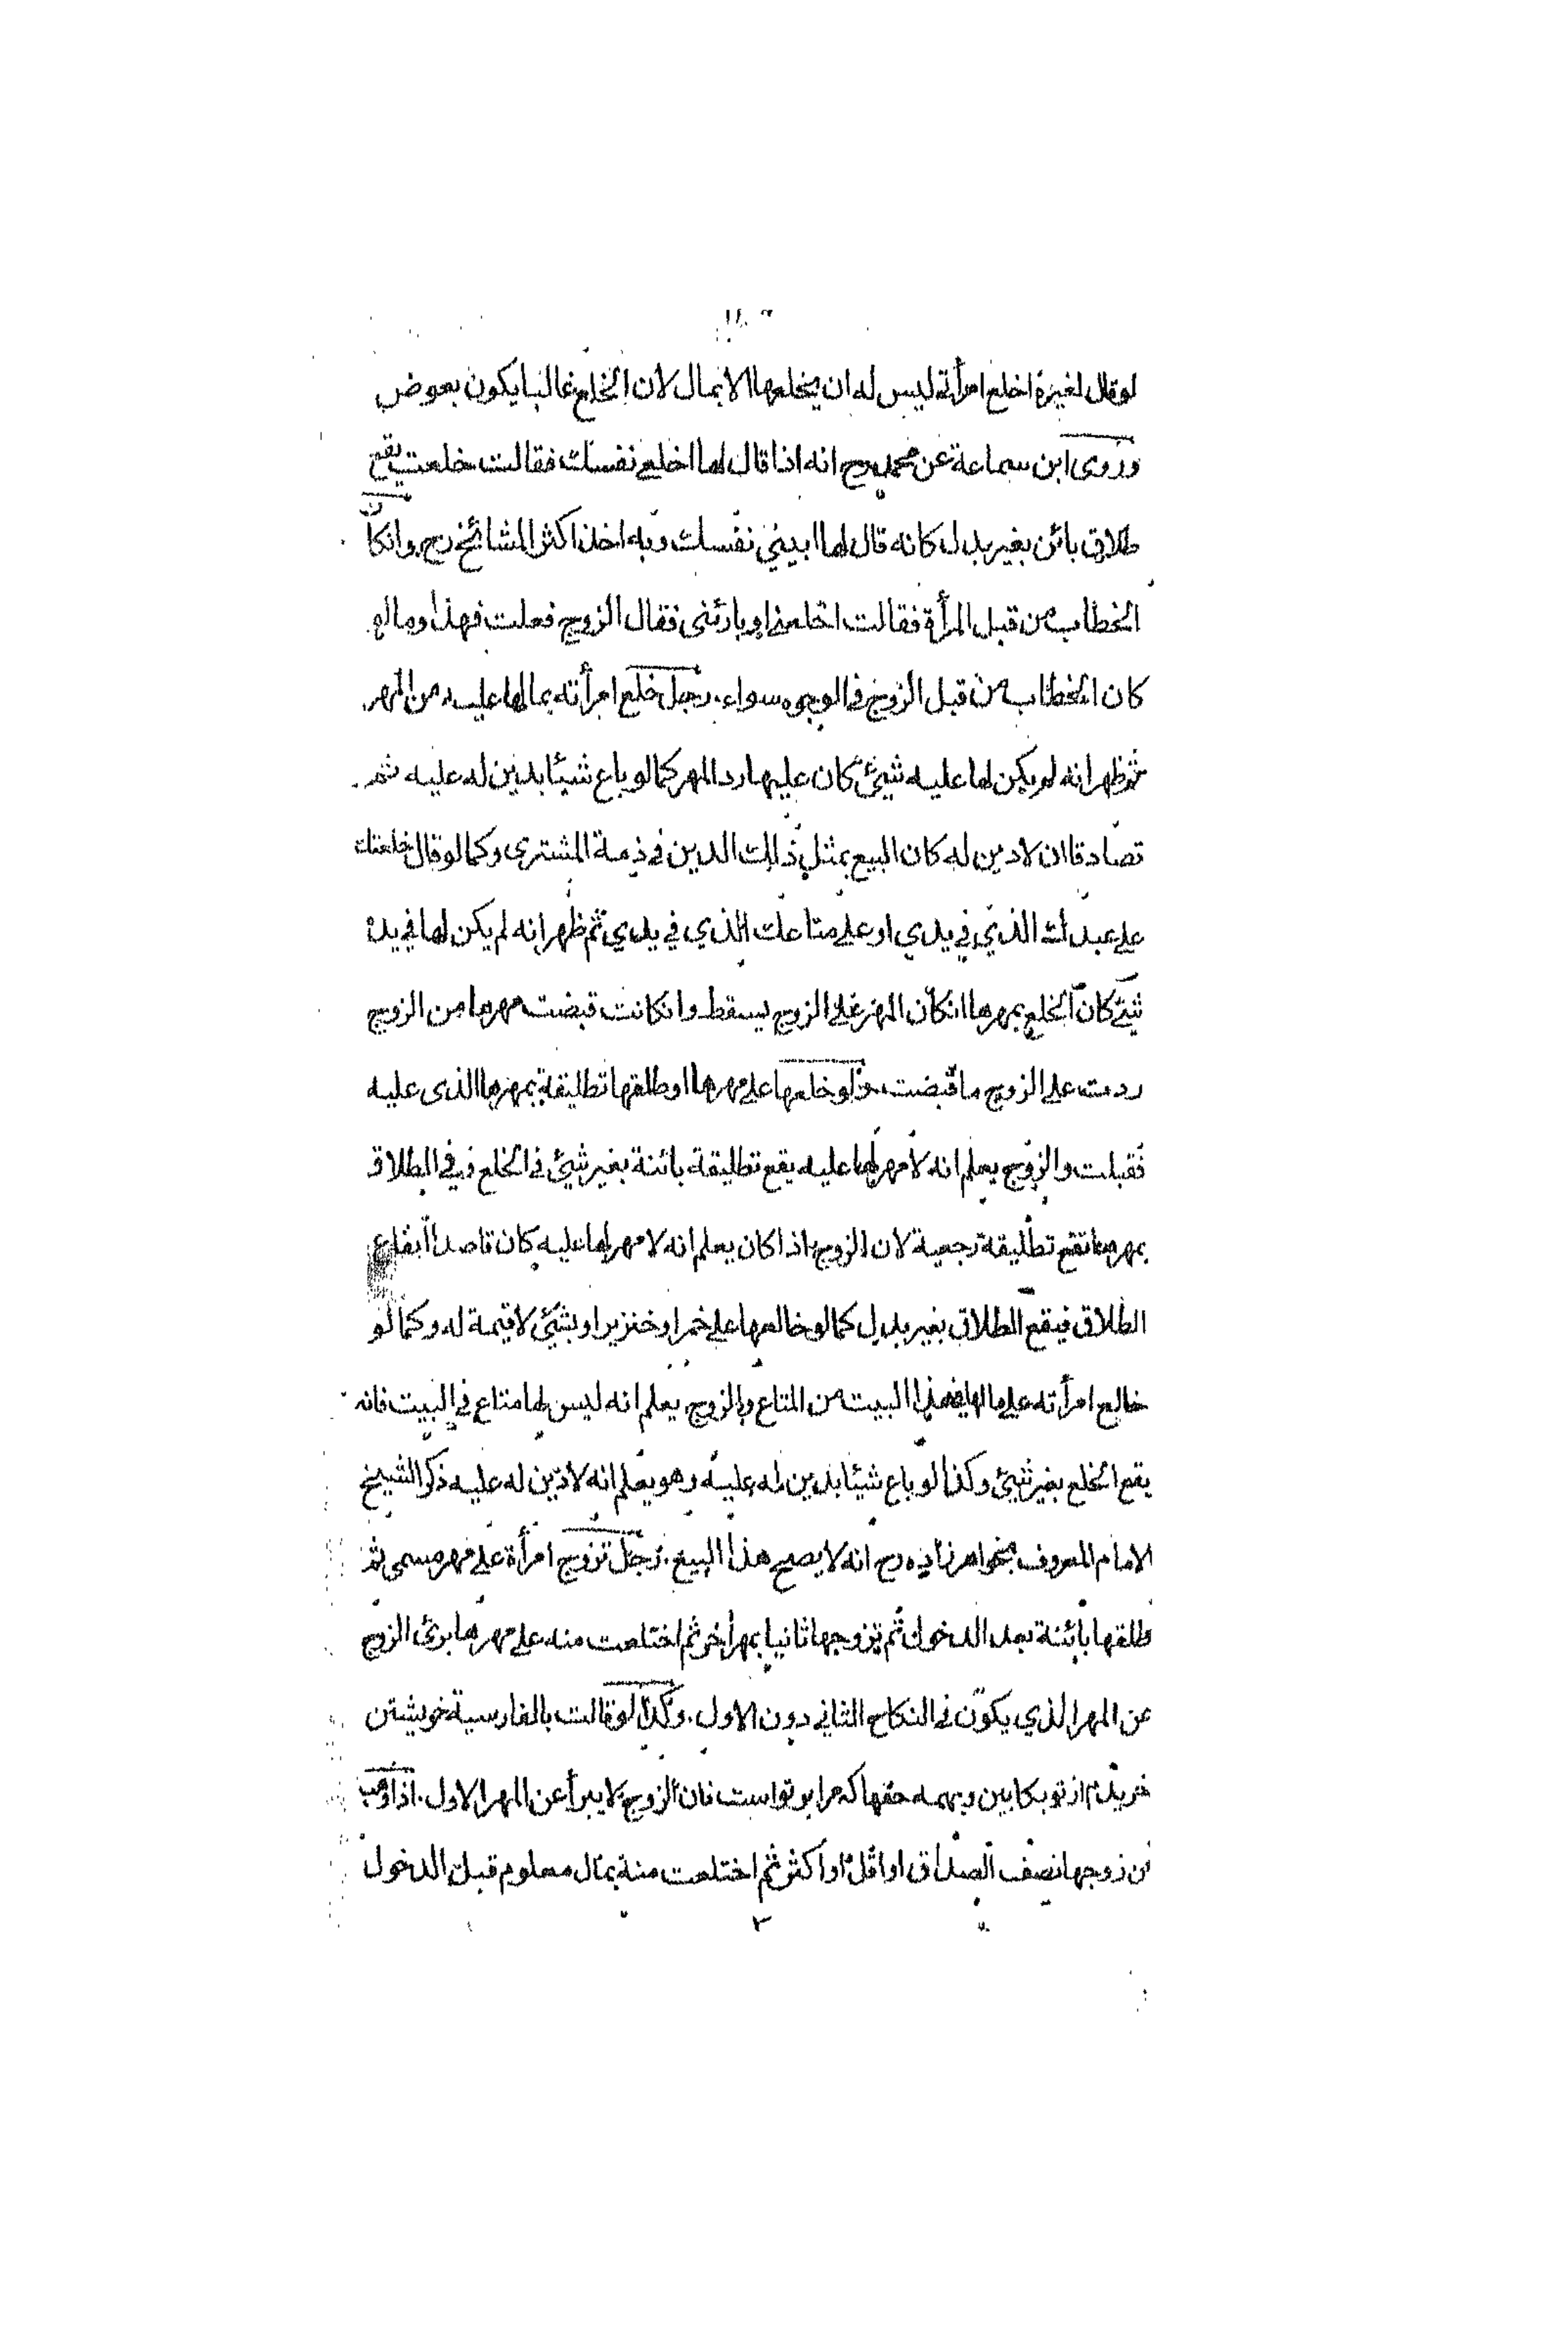 لو قال لغيره اخلع امرأته ليس له ان يخلعها الا بمال لان الخلع غالبا يكون بعوض
وروى ابن سماعة عن محمد رح انه اذا قال لها اخلعي نفسك فقالت خلعت يقع
طلاق بائن بغير بدل كانه قال لها ابيني نفسك وبه اخذ اكثر المشائخ رح وانكان
الخطاب من قبل المرأة فقالت اخلعني او بارئني فقال الزوج فعلت فهذا وما لو
كان الخطاب من قبل الزوج في الوجوه سواء . رجل خلع امرأته بمالها عليه من المهر
ثم ظهر انه لم يكن لها عليه شيئ كان عليها رد المهر كما لو باع شيئا بدين له عليه ثم
تصادقا ان لا دين له كان البيع بمثل ذلك الدين في ذمة المشترى وكما لو قال خلعتك
على عبدك الذي في يدي او على متاعك الذي في يدي ثم ظهر انه لم يكن لها في يده
شيئ كان الخلع بمهرها انكان المهر على الزوج يسقط وانكانت قبضت مهرها من الزوج
ردت على الزوج ما قبضت . ولو خلعها على مهرها او طلقها تطليقة بمهرها الذى عليه
فقبلت والزوج يعلم انه لا مهر لها عليه يقع تطليقة بائنة بغير شيئ في الخلع وفي الطلاق
بمهرها تقع تطليقة رجعية لان الزوج اذا كان يعلم انه لا مهر لها عليه كان قاصدا ايقاع
الطلاق فيقع الطلاق بغير بدل كما لو خالعها على خمر او خنزير او بشيئ لا قيمة له وكما لو
خالع امرأته على مالها في هذا البيت من المتاع والزوج يعلم انه ليس لها متاع في البيت فانه
يقع الخلع بغير شيئ وكذا لو باع شيئا بدين له عليه وهو يعلم انه لا دين له عليه ذكر الشيخ
الامام المعروف بخواهرزاده رح انه لا يصح هذا البيع . رجل تزوج امرأة على مهر مسمى ثم
طلقها بائنة بعد الدخول ثم تزوجها ثانيا بمهر اخر ثم اختلعت منه على مهرها برئ الزوج
عن المهر الذي يكون في النكاح الثاني دون الاول . وكذا لو قالت بالفارسية خويشتن
خريدم از تو بكابين وبهمه حقها كه مرا بر تواست فان الزوج لا يبرأ عن المهر الاول . اذا وهبت
من زوجها نصف الصداق او اقل او اكثر ثم اختلعت منه بمال معلوم قبل الدخول